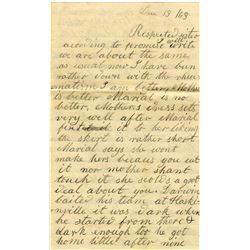 13 /63
Respected sister
acording to promise I will write
we are about the same
as usual now I have been
rather down with the rheu
matism I am better Mother
is better Marial is no
better, Mothers dress sets
very well after Marial
it to her liking
the skirt is rather short
Marial says she wont
make hers because you cut
it nor mother shant
touch it she scolds a good
deal about you Darwin
bailed his team at Hask
inville it was dark when
he started from here &
dark enough to he got
home little after nine